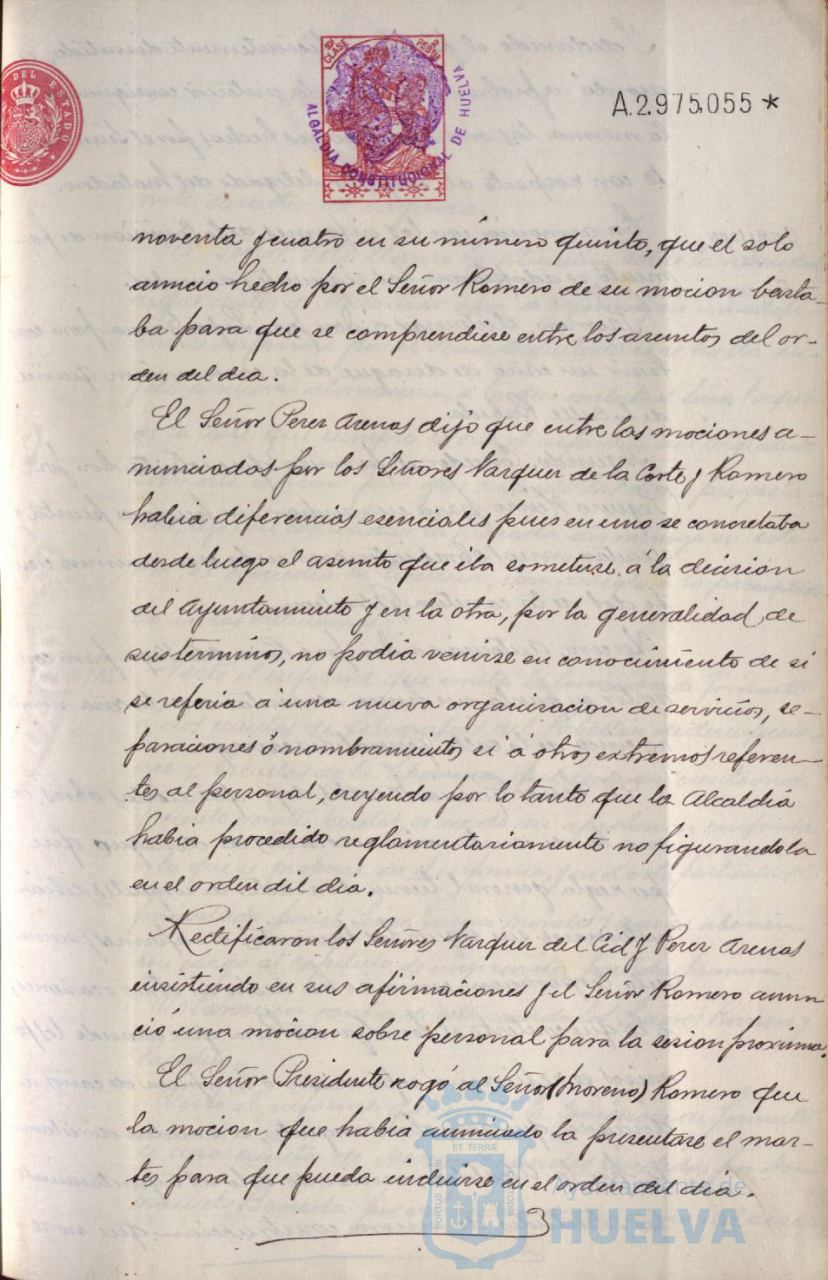 DEL ESTADO
10ª CLASE 2 PESETAS
ALCALDIA CONSTITUCIONAL DE HUELVA
A.2.975,055 *
noventa y cuatro en su número quinto, que el solo
anuncio hecho por el Señor Romero de su mocion basta-
ba para que se comprendiese entre los asuntos del or-
den del dia.
El Señor Perez Arenas dijo que entre las mociones a-
nunciadas por los Señores Vazquez de la Corte y Romero
habia diferencias esenciales pues en uno se concretaba
desde luego el asunto que iba someterse á la decision
del Ayuntamiento y en la otra, por la generalidad de
sus terminos, no podia venirse en conocimiento de si
se referia á una nueva organizacion de servicios, se-
paraciones ó nombramientos si á otros extremos referen-
tes al personal, creyendo por lo tanto que la Alcaldia
habia procedido reglamentariamente no figurandola
en el orden del dia.
Rectificaron los Señores Vazquez del Cid y Perez Arenas
insistiendo en sus afirmaciones y el Señor Romero anun
ció una mocion sobre personal para la sesion proxima.
El Señor Presidente rogó al Señor (Moreno) Romero que
la mocion que habia anunciado la presentase el mar-
tes para que pueda incluirse en el orden del dia.
PORTUS ET TERRÆ CUSTODIA
Ayuntamiento de
HUELVA